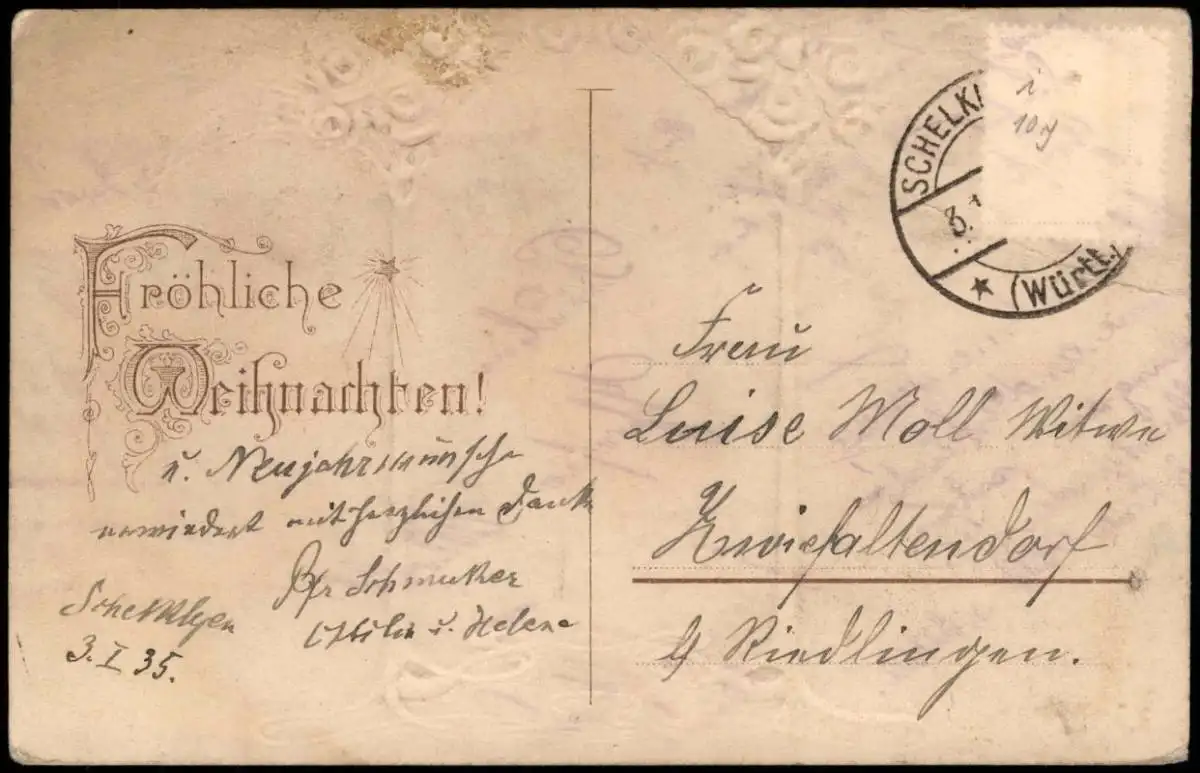 Fröhliche
Weihnachten!
u. Neujahrwünsche
erwiedert mit herzlichen Dank
Pfr Schmuker
u. Helene
Schelklgen
3. I 35.
SCHELKL
3.1
(Württ.)
10
Frau
Luise Moll Witwe
Zwiefaltendorf
Riedlingen.